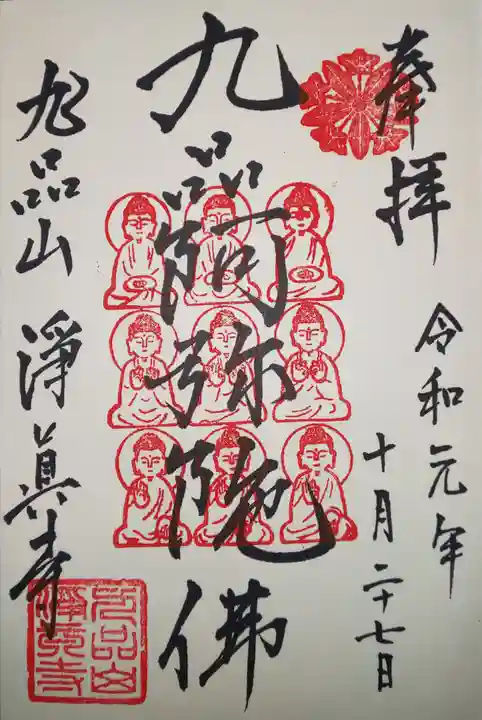 奉拝
令和元年
十月二十七日
九品阿弥陀佛
九品山 淨眞寺
九品山
淨眞寺